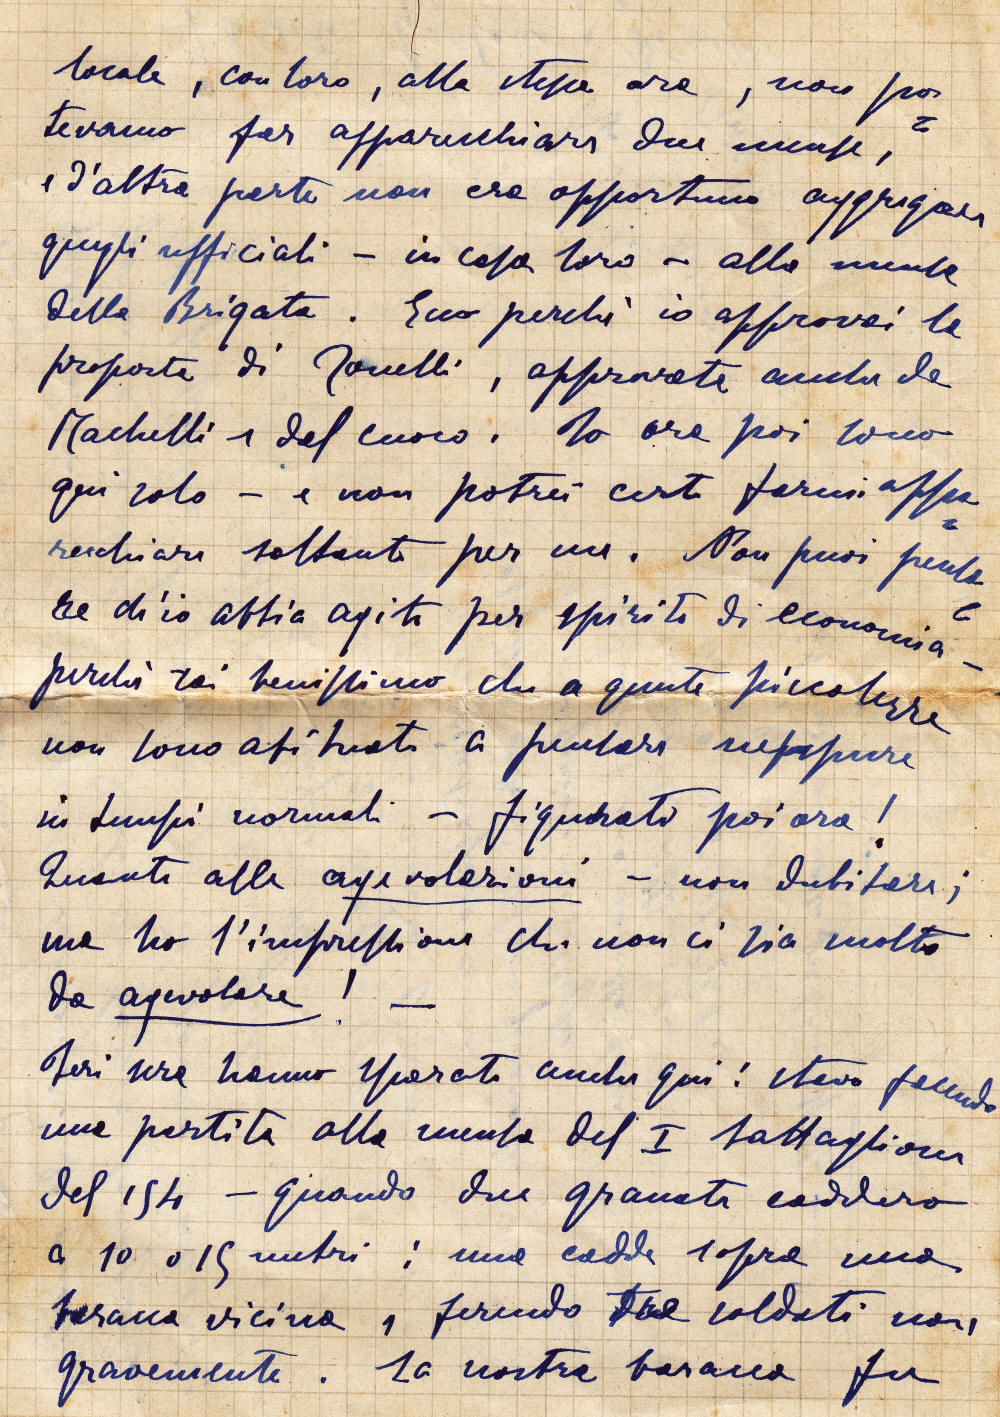 locale, con loro, alla stessa ora, non po=
tevamo far apparecchiare due mense,
e d'altra parte non era opportuno aggregare
quegli ufficiali – in casa loro – alla mensa
della Brigata. Ecco perchè io approvai la
proposta di Zanelli, approvata anche da
Machelli e dal cuoco. Io ora poi sono
qui solo – e non potrei certo farmi appa=
recchiare soltanto per me. Non puoi pensa=
re ch'io abbia agito per spirito di economia –
perchè sai benissimo che a queste piccolezze
non sono abituato a pensare neppure
in tempi normali – figurati poi ora!
Quanto alle agevolazioni – non dubitare;
ma ho l'impressione che non ci sia molto
da agevolare! —
Ieri sera hanno sparato anche qui: stavo facendo
una partita alla mensa del I battaglione
del 154 – quando due granate caddero
a 10 o 15 metri: una cadde sopra una
baracca vicina, ferendo due soldati non
gravemente. La nostra baracca fu